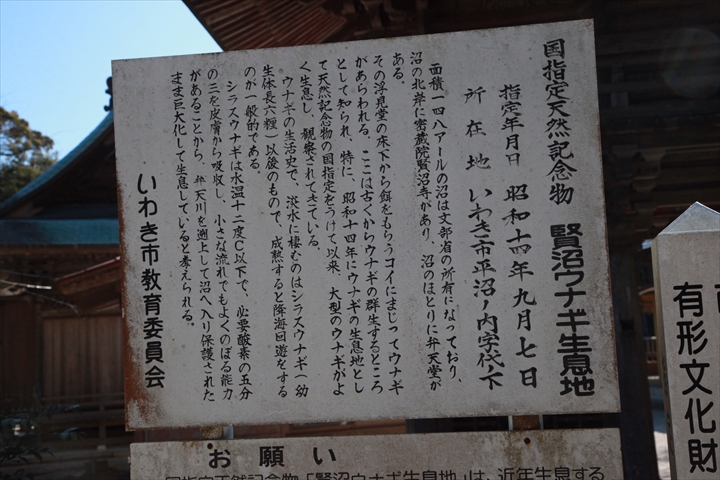 国指定天然記念物　賢沼ウナギ生息地
指定年月日　昭和十四年九月七日
所在地　いわき市平沼ノ内字代ノ下
面積一四八アールの沼は文部省の所有になっており、
沼の北岸に密蔵院賢沼寺があり、沼のほとりに弁天堂が
ある。
その浮見堂の床下から餌をもらうコイにまじってウナギ
があらわれる。ここは古くからウナギの群生するところ
として知られ、特に、昭和十四年にウナギの生息地とし
て天然記念物の国指定をうけて以来、大型のウナギがよ
く生息し、観察されてきている。
ウナギの生活史で、淡水に棲むのはシラスウナギ（幼
生体長六糎）以後のもので、成熟すると降海回遊をする
のが一般的である。
シラスウナギは水温十二度C以下で、必要酸素の五分
の三を皮膚から吸収し、小さな流れでもよくのぼる能力
があることから、弁天川を遡上して沼へ入り保護された
まま巨大化して生息していると考えられる。
いわき市教育委員会
お願い
国指定天然記念物「賢沼ウナギ生息地」は、近年生息する
有形文化財